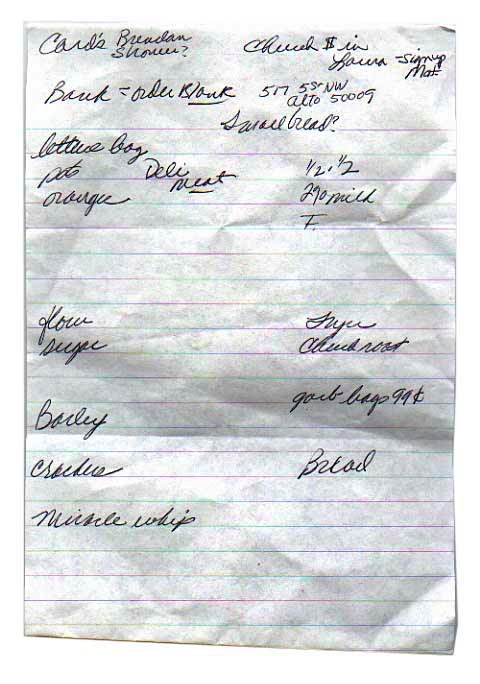 Card's Brendan
Shower?
Church $ in
Laura - signup
Mat.
Bank = order Blank
517 5st NW
alto 50009
Small bread?
lettuce bag
pots
Deli
meat
1/2 . 1/2
orange
2% milk
T.
flour
sugar
Fryer
Chuck roast
garb bags 99¢
Barley
Crackers
Bread
Miracle whip